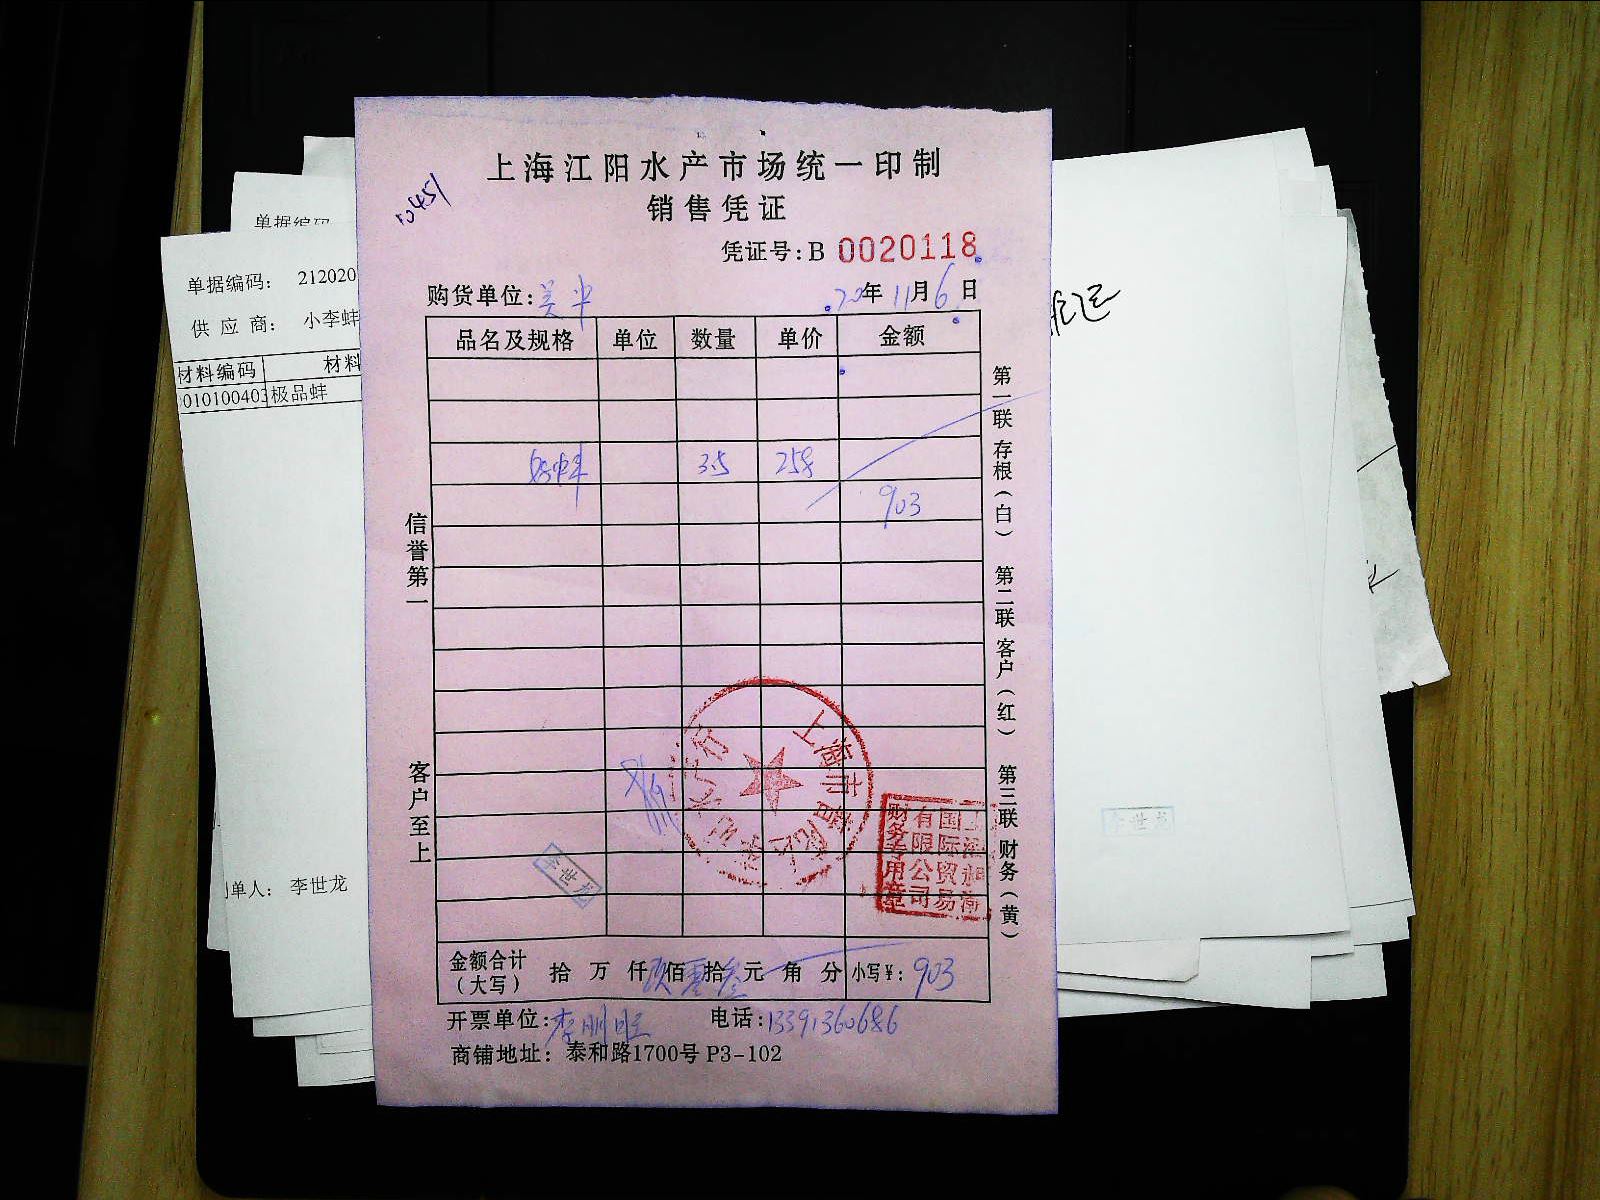 上海江阳水产市场统一印制
销售凭证
10451
凭证号:B 0020118
购货单位:
20年11月6日
品名及规格 单位 数量 单价 金额
3.5 258
903
信誉第一
客户至上
第一联 存根(白) 第二联 客户(红) 第三联 财务(黄)
上海市
财务专用章
有限公司
国际贸易
李世龙
金额合计(大写) 拾 万 仟 玖佰零拾叁元 角 分 小写¥: 903
开票单位:李刚旺 电话:13391360686
商铺地址: 泰和路1700号 P3-102
单据编码
单据编码: 212020
供 应 商: 小李蚌
材料编码 材料
010100403 极品蚌
制单人: 李世龙
李世龙